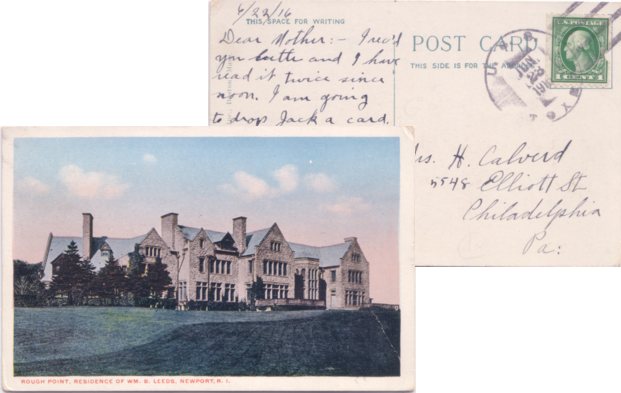 6/22/16
THIS SPACE FOR WRITING
Dear Mother:- I rec'd
you lette and I have
read it twice since
noon. I am going
to drop Jack a card.
POST CARD
THIS SIDE IS FOR THE
U.S. POSTAGE
1 CENT 1
U.S.S.
JUN
22
191
N.Y.
rs. H. Calverd
5548 Elliott St
Philadelphia
Pa:
ROUGH POINT, RESIDENCE OF WM. B. LEEDS, NEWPORT, R. I.